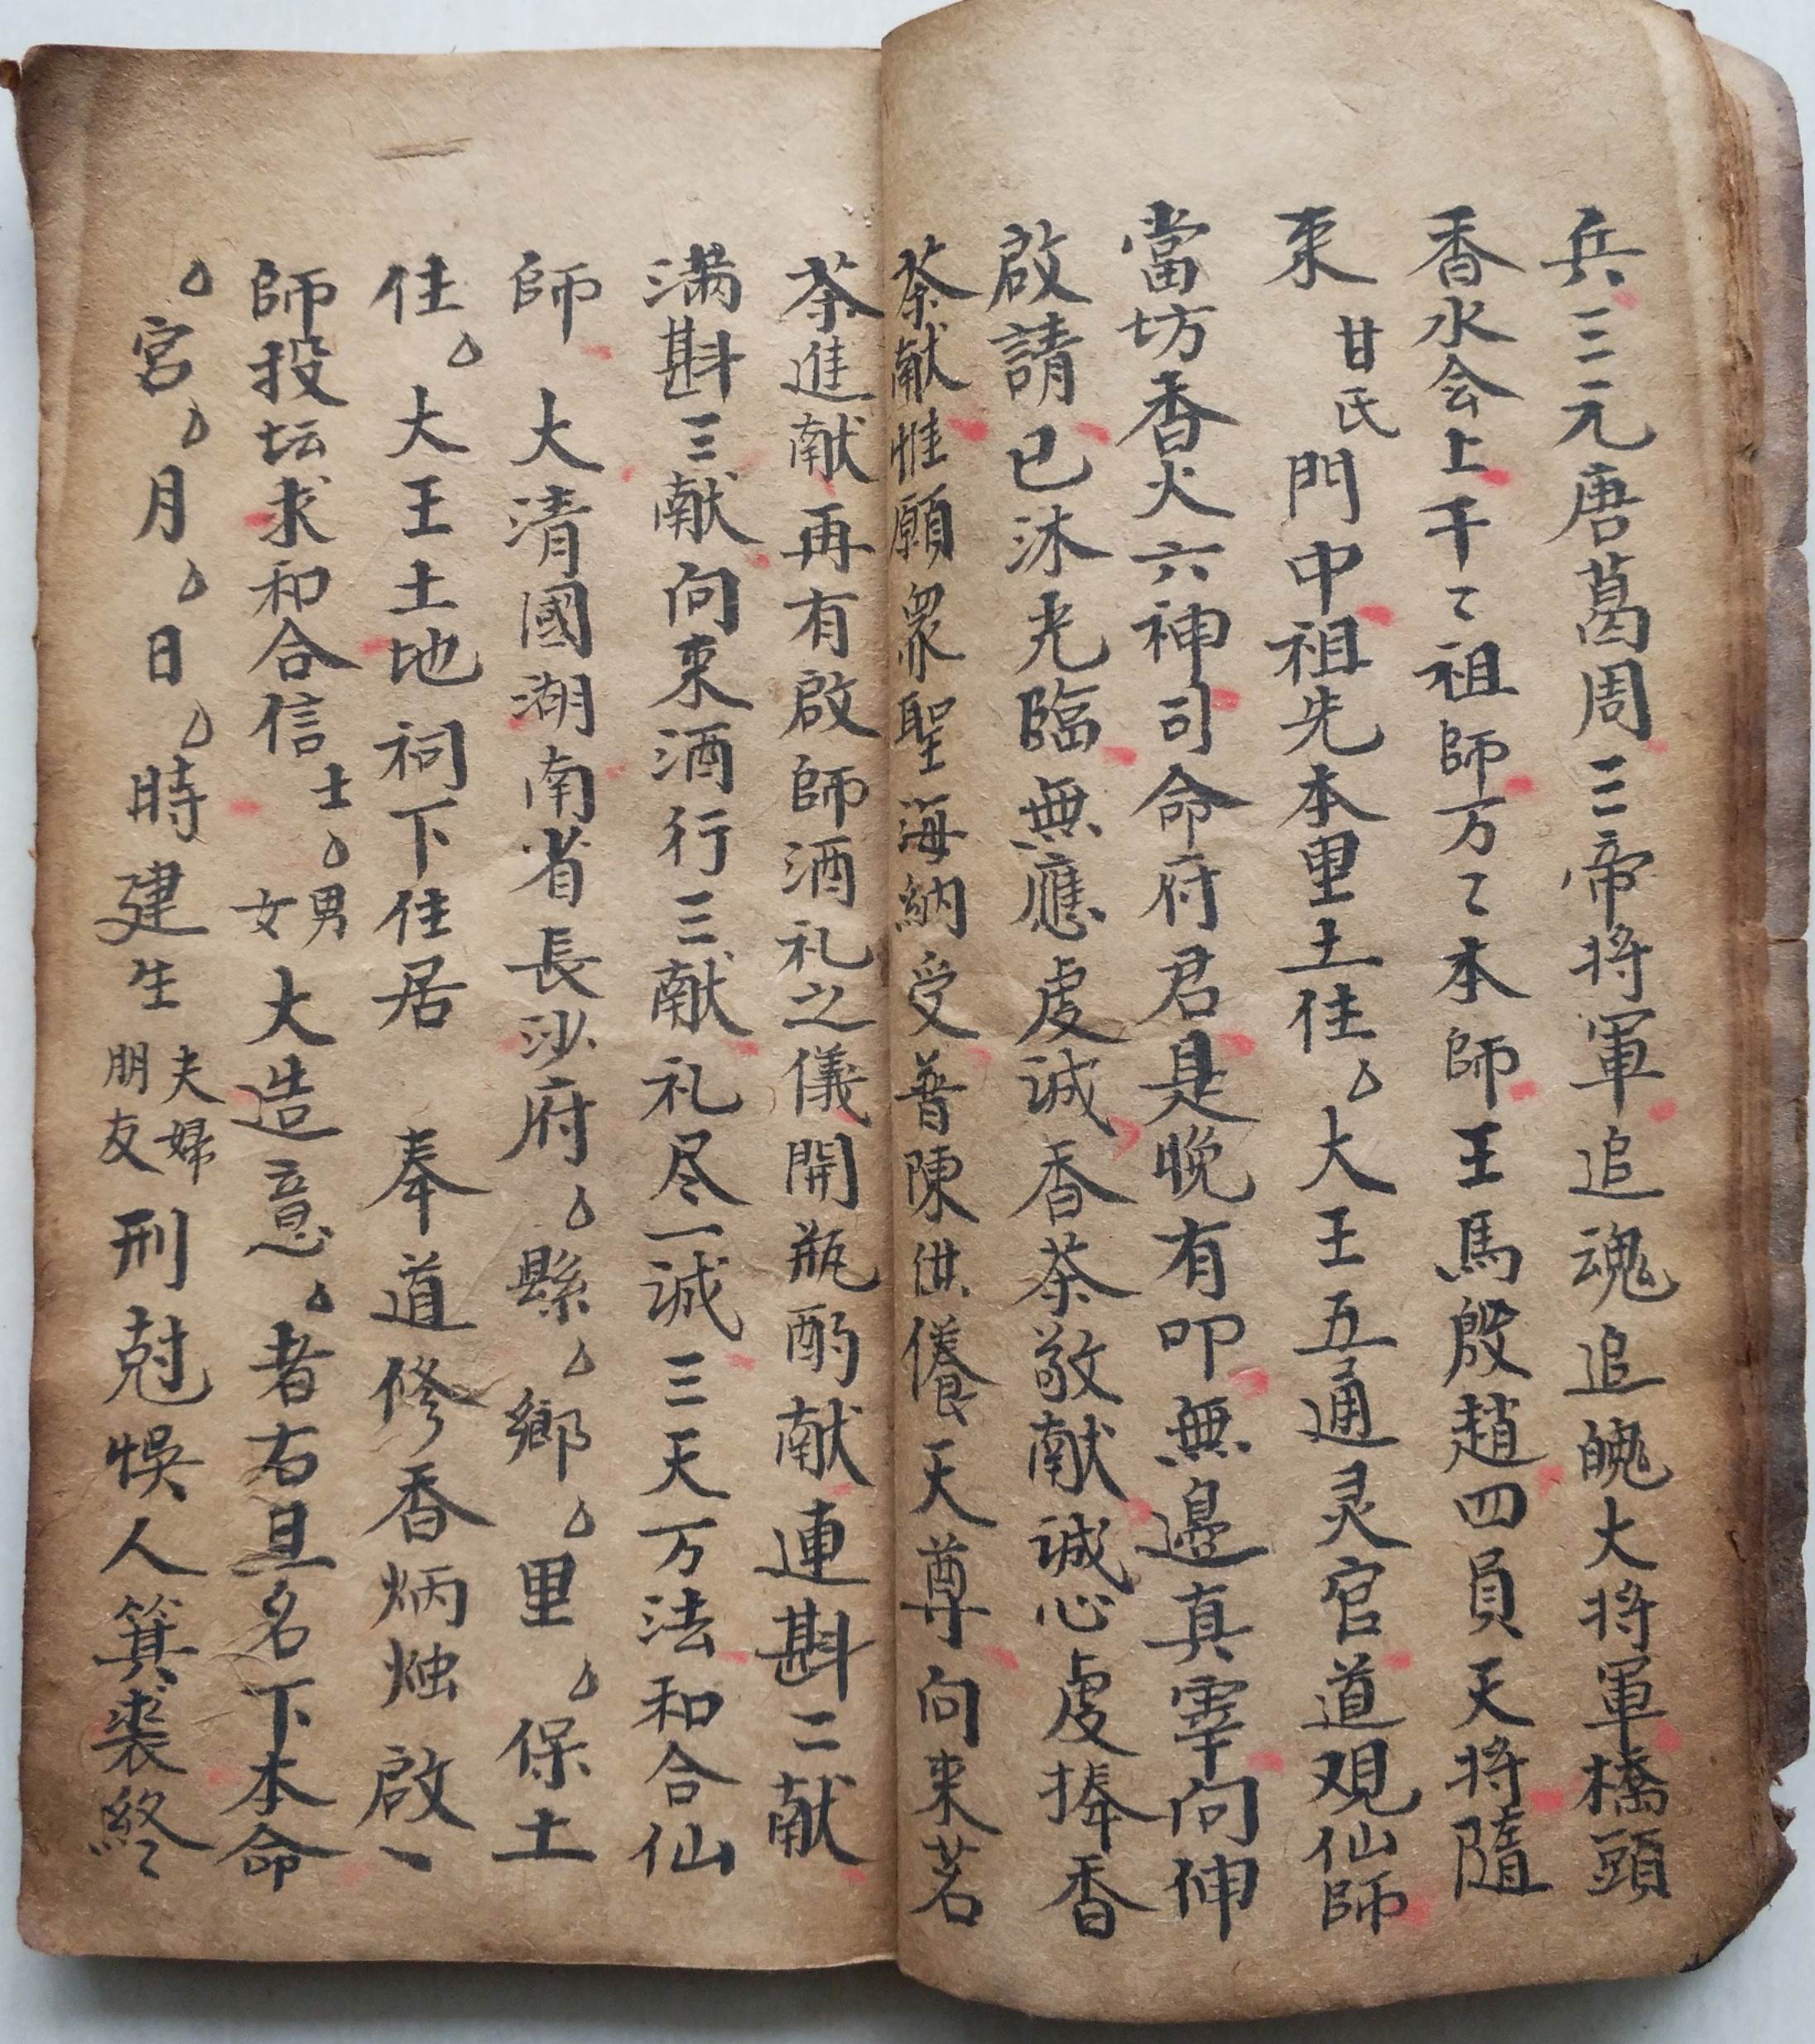 兵三元唐葛周三帝将軍追魂追魄大将軍橋頭
香水会上千々祖師万々本師王馬殷趙四員天将隨
来甘氏門中祖先本里土住〇大王五通灵官道观仙師
當坊香火六神司命府君是晚有叩無邉真宰向伸
啟請已沐光臨無應虔誠香茶敬献誠心虔捧香
茶献惟願眾聖海納受普陳供養天尊向来茗
茶進献再有啟師酒礼之儀開瓶酌献連斟二献
满斟三献向来酒行三献礼尽一诚三天万法和合仙
師 大清國湖南省長沙府〇縣〇鄉〇里〇保土
住〇大王土地祠下住居 奉道修香炳烛啟一
師投坛求和合信士〇男女大造意〇者右旦名下本命
〇宮〇月〇日〇時建生夫婦朋友刑尅悞人箕裘終